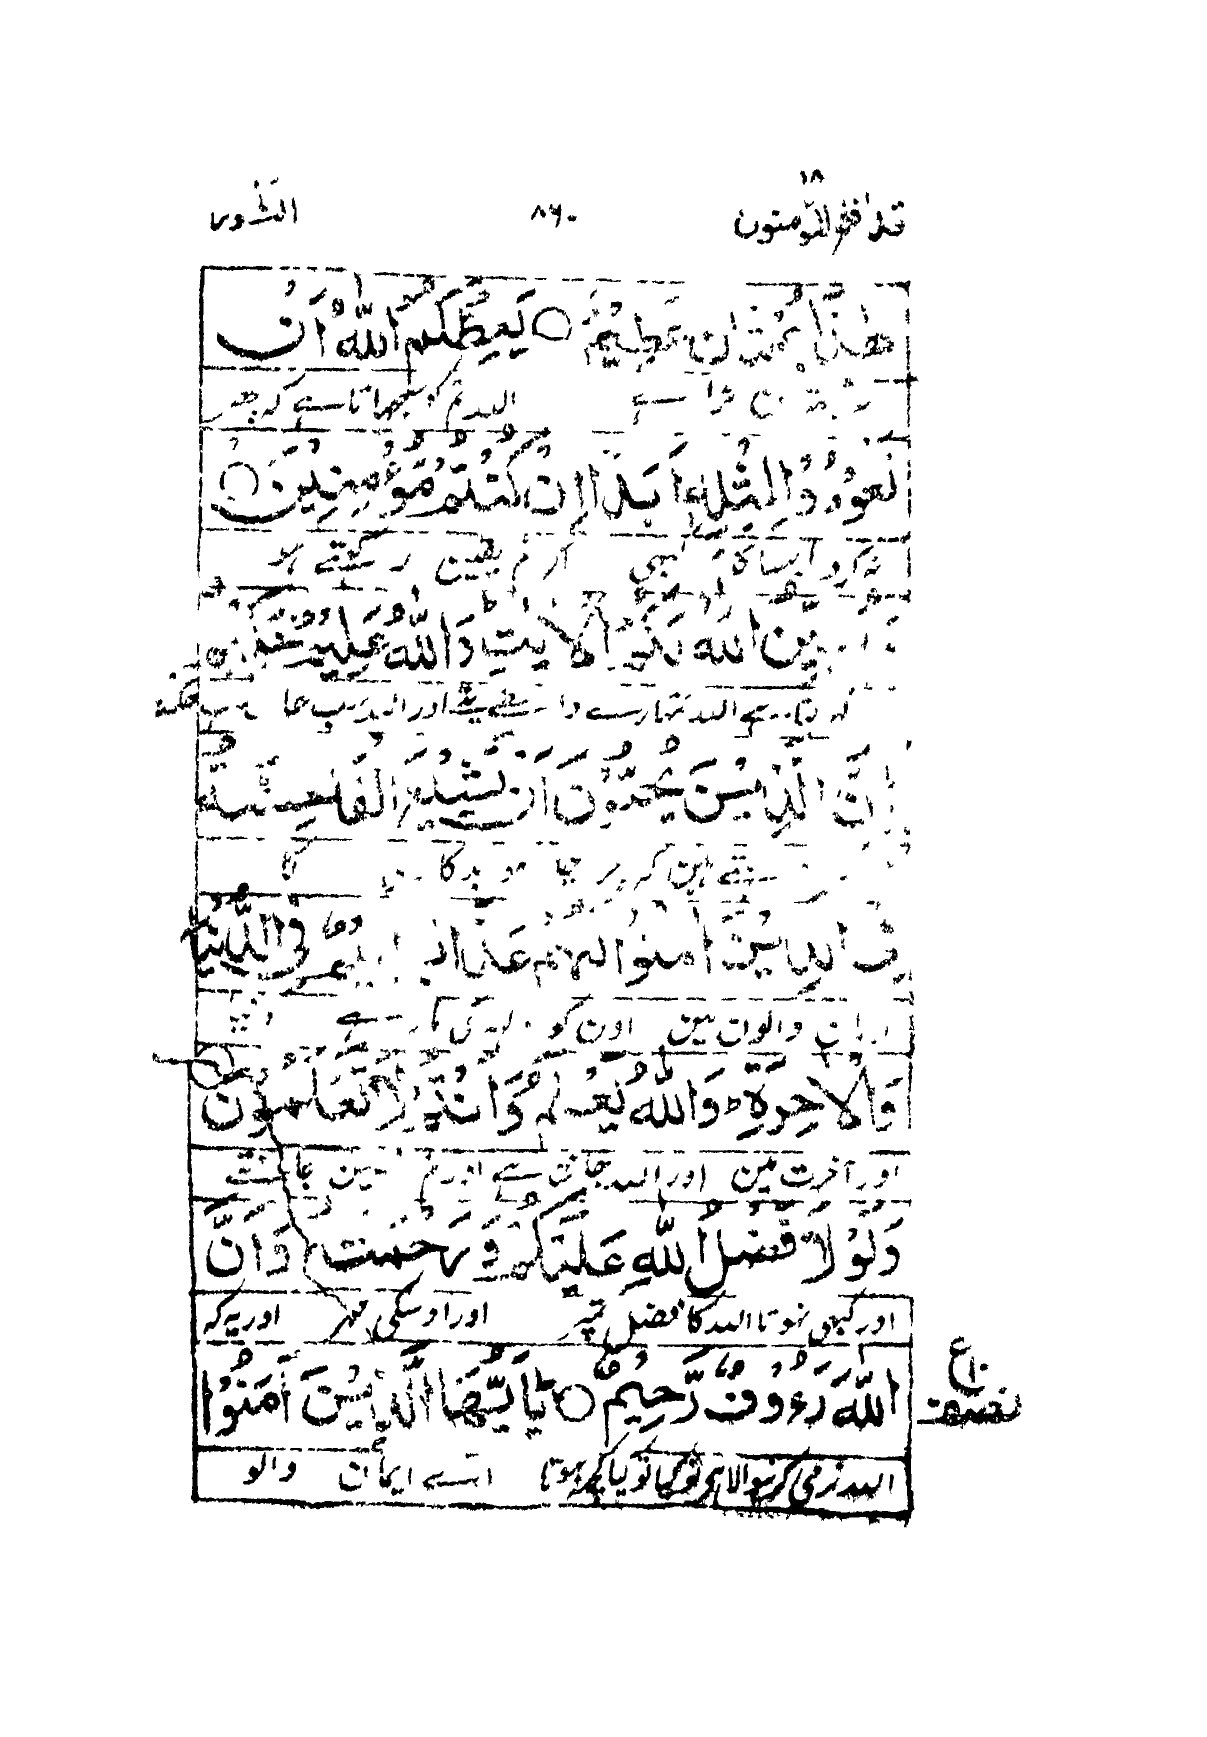 ۱۸
قد افلح المؤمنون ۸۶۰ النور
هٰذَا بُهْتَانٌ عَظِيْمٌ ○ يَعِظُكُمُ اللّٰهُ اَنْ
بڑا ہے اللہ تم کو سمجھاتا ہے کہ پھر
تَعُوْدُوْا لِمِثْلِهٖٓ اَبَدًا اِنْ كُنْتُمْ مُّؤْمِنِيْنَ ○
نہ کرو ایسا کام کبھی اگر تم یقین رکھتے ہو
يُبَيِّنُ اللّٰهُ لَكُمُ الْاٰيٰتِ وَاللّٰهُ عَلِيْمٌ حَكِيْمٌ
اللہ تمہارے واسطے پتے اور اللہ سب
اِنَّ الَّذِيْنَ يُحِبُّوْنَ اَنْ تَشِيْعَ الْفَاحِشَةُ
ہین کہ چرچا ہو بدکاری کا
فِي الَّذِيْنَ اٰمَنُوْا لَهُمْ عَذَابٌ اَلِيْمٌ فِي الدُّنْيَا
ایمان والون مین اون کو دکھ کی مار ہے
وَالْاٰخِرَةِ ؕ وَاللّٰهُ يَعْلَمُ وَاَنْتُمْ لَا تَعْلَمُوْنَ
اور آخرت مین اور اللہ جانتا ہے اور تم نہین جانتے
وَلَوْلَا فَضْلُ اللّٰهِ عَلَيْكُمْ وَرَحْمَتُهٗ وَاَنَّ
اور کبھی نہوتا اللہ کا فضل تمپر اور اوسکی مہر اور یہ کہ
اللّٰهَ رَءُوْفٌ رَّحِيْمٌ ○ يٰاَيُّهَا الَّذِيْنَ اٰمَنُوْا
ع
نصف
اللہ نرمی کرنیوالا ہی کیا کچھ ہوتا اے ایمان والو